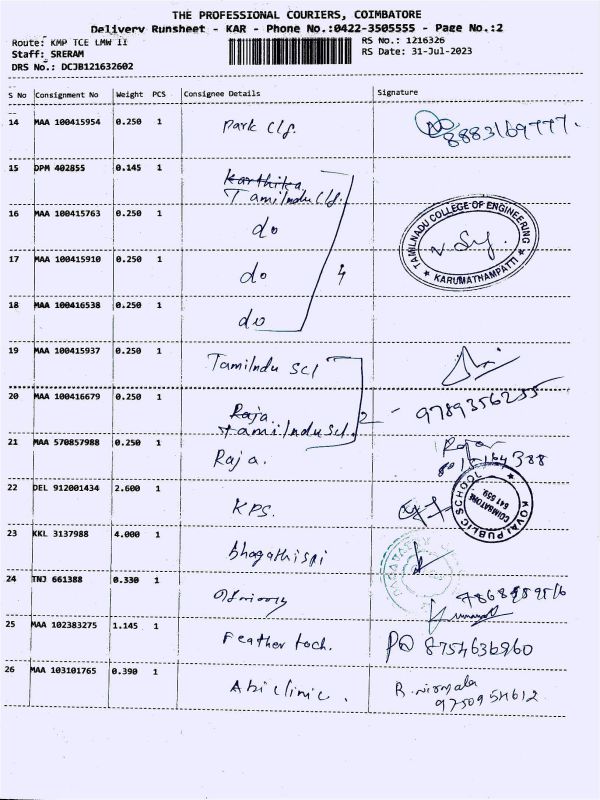 THE PROFESSIONAL COURIERS, COIMBATORE
Delivery Runsheet - KAR - Phone No.:0422-3505555 - Page No.:2
Route: KMP TCE LMW II
Staff: SRERAM
DRS No.: DCJB121632602
RS No.: 1216326
RS Date: 31-Jul-2023
S No Consignment No Weight PCS Consignee Details Signature
14 MAA 100415954 0.250 1 Park Clg. 8883169777.
15 DPM 402855 0.145 1 Karthika
Tamilndu Clg.
16 MAA 100415763 0.250 1 do
17 MAA 100415910 0.250 1 do 4
18 MAA 100416538 0.250 1 do
TAMILNADU COLLEGE OF ENGINEERING
KARUMATHAMPATTI
19 MAA 100415937 0.250 1 Tamilndu Scl
20 MAA 100416679 0.250 1 Raja
Tamilndu Scl. 2 - 9789356255
21 MAA 570857988 0.250 1 Raja.
22 DEL 912001434 2.600 1 KPS.
KOVAI PUBLIC SCHOOL
COIMBATORE
641 659.
23 KKL 3137988 4.000 1
24 TNJ 661388 0.330 1
25 MAA 102383275 1.145 1 Feather toch. 8754636960
26 MAA 103101765 0.390 1 Abi clinic. R. Nirmala
9750954612